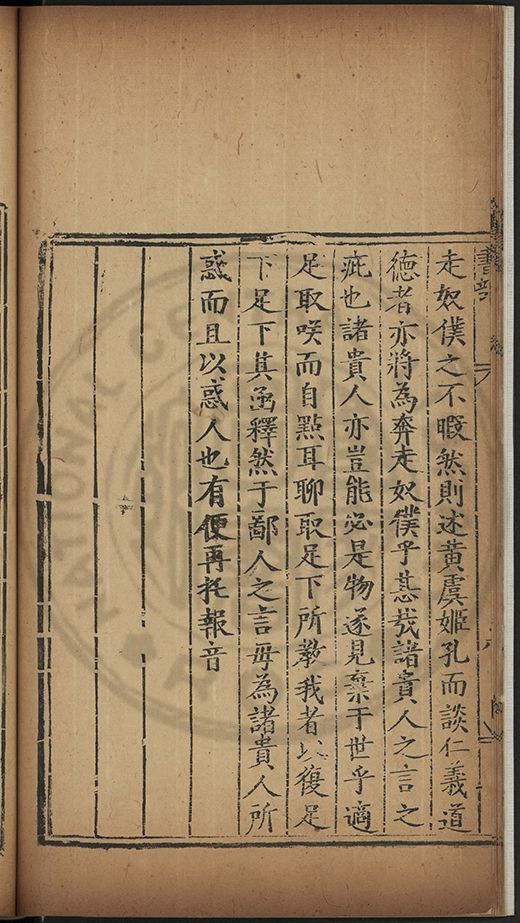 走奴僕之不暇然則述黃虞姬孔而談仁義道
德者亦將為奔走奴僕乎甚哉諸貴人之言之
疵也諸貴人亦豈能必是物遂見棄于世乎適
足取咲而自點耳聊取足下所教我者以復足
下足下其亟釋然于鄙人之言毋為諸貴人所
惑而且以惑人也有便再托報音